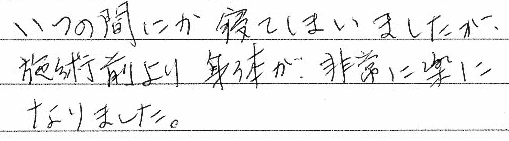 いつの間にか寝てしまいましたが、
施術前より身体が非常に楽に
なりました。